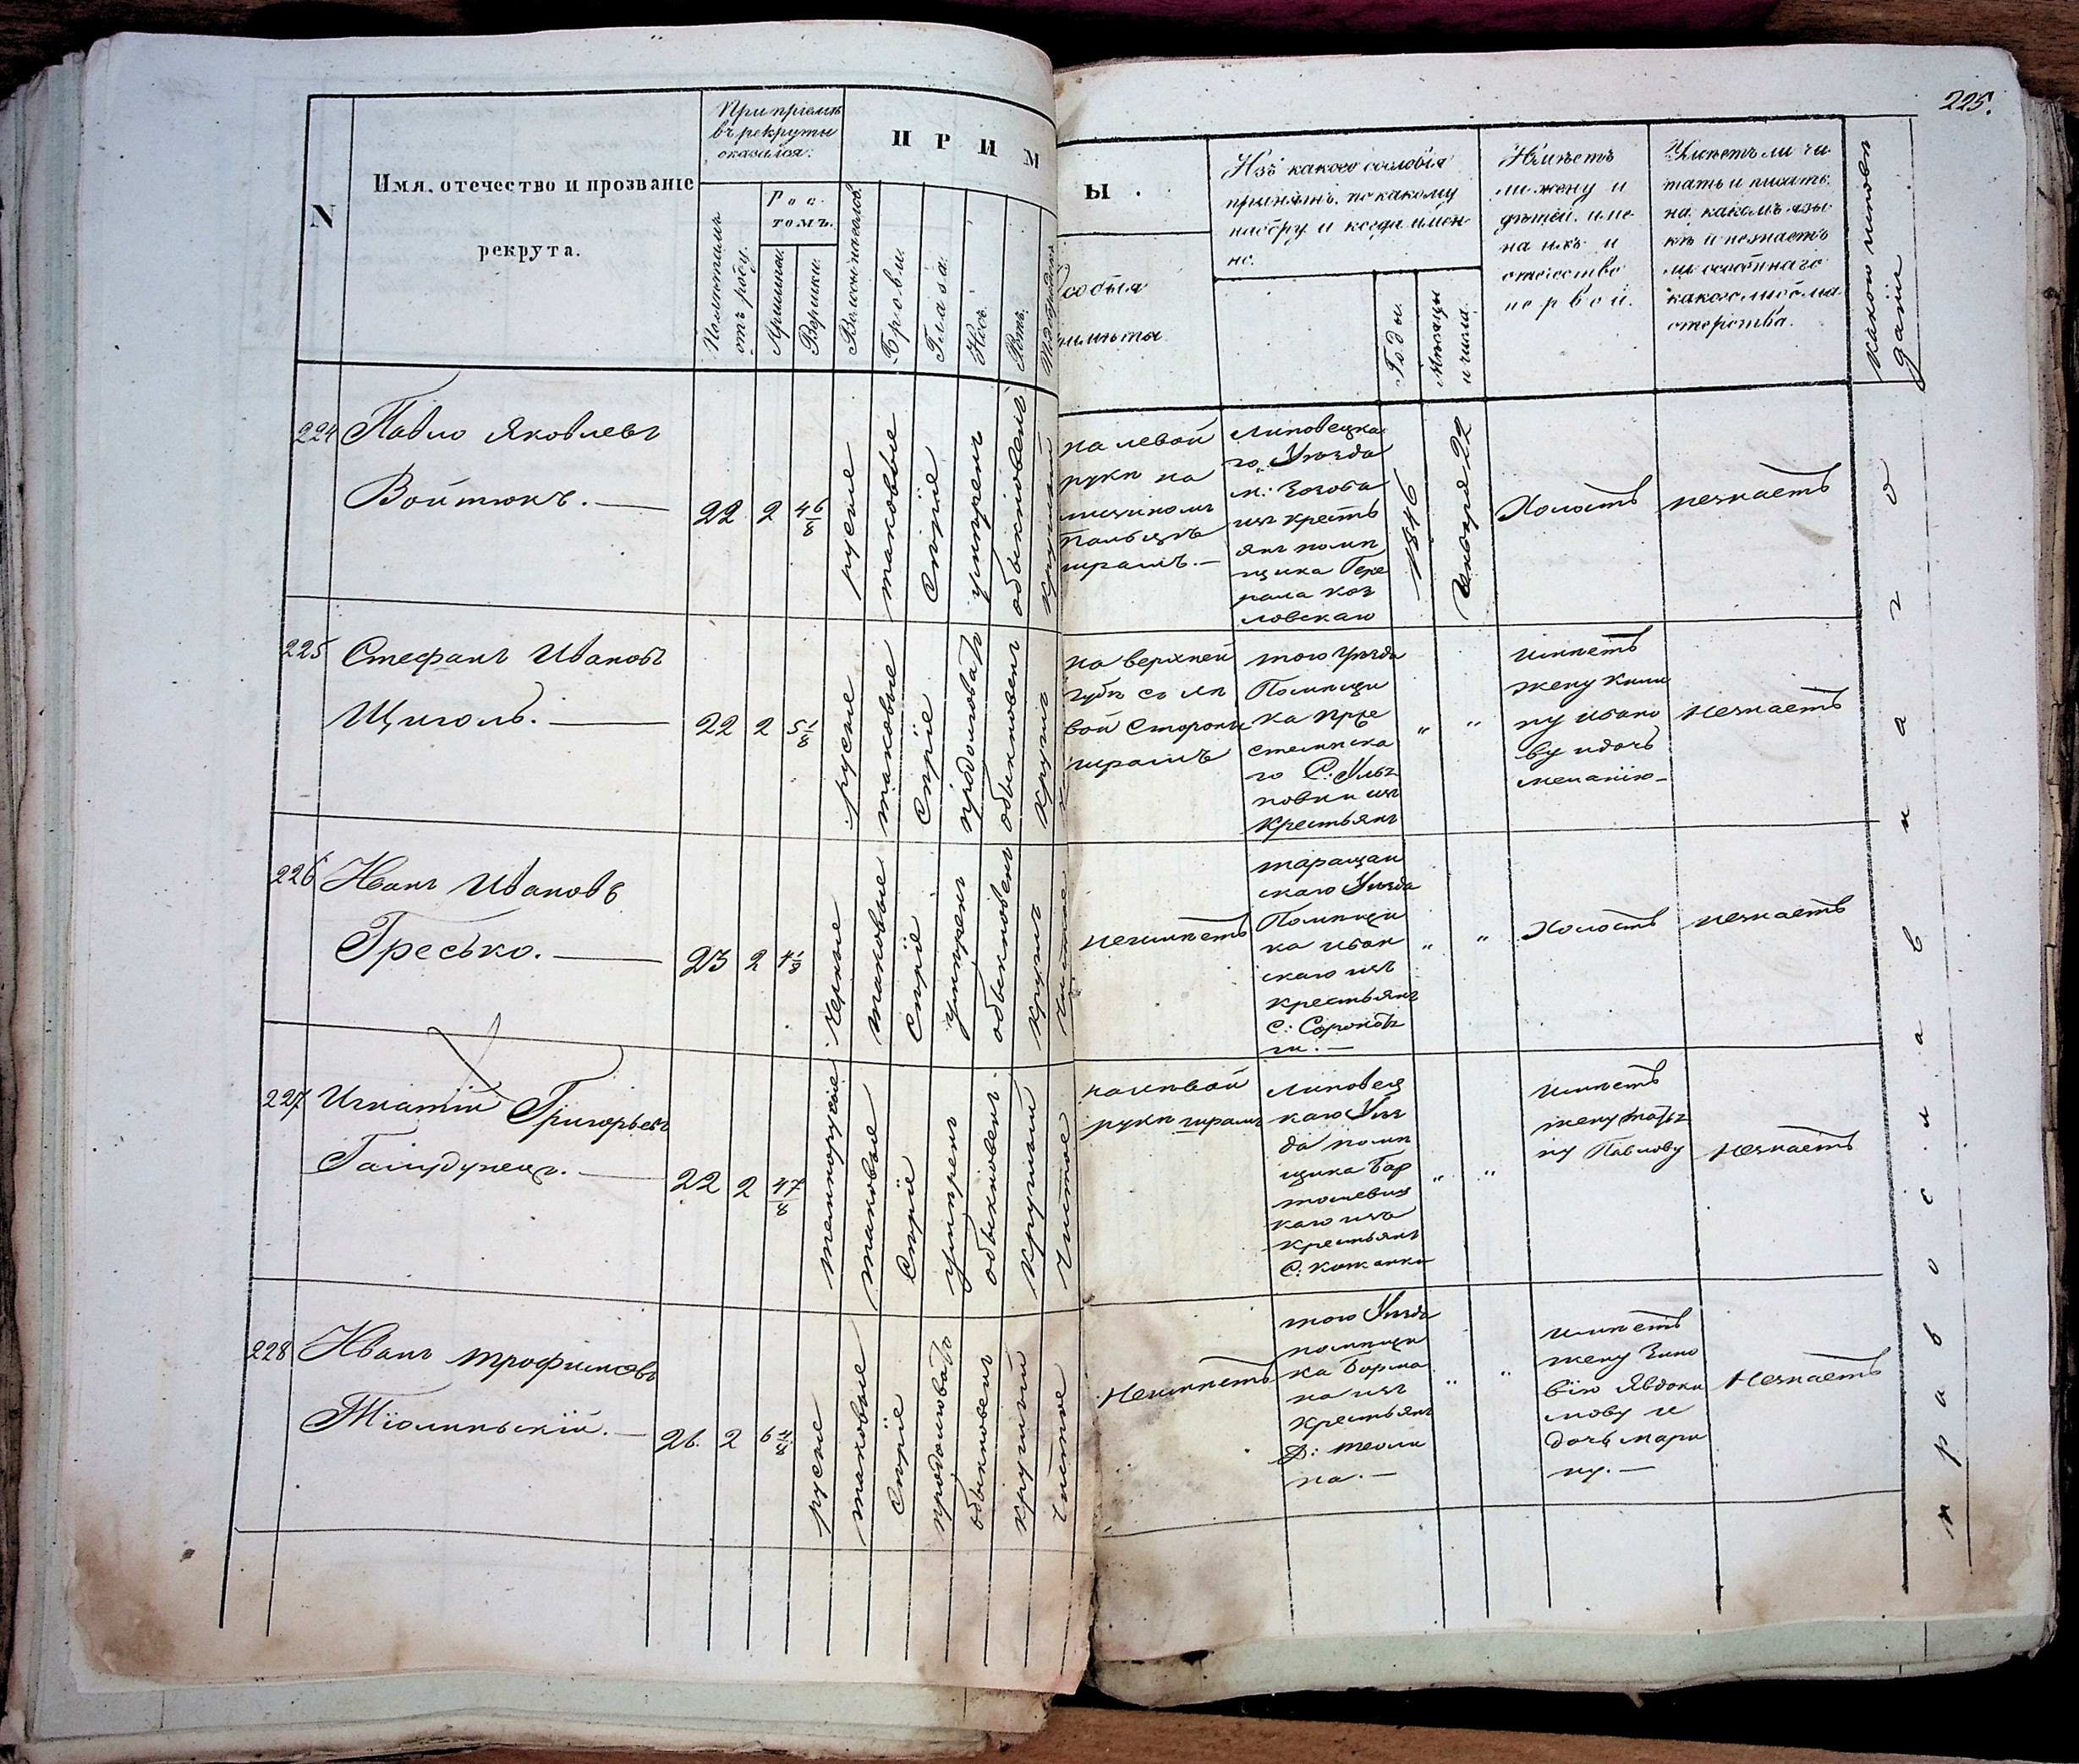 225.
N
Имя, отечество и прозваніе
рекрута.
При пріемѣ
въ рекруты
оказался:
Лѣтъ
отъ роду.
Рос-
томъ.
Аршины.
Вершки.
П Р И М
Волосы на головѣ
Брови.
Глаза.
Носъ.
Ротъ.
Подбородокъ
Ы.
Особыя
примѣты
Изъ какого сословія
принятъ, по какому
набору и когда имен-
но.
Годы.
Мѣсяцы
и числа.
Имѣетъ
ли жену и
дѣтей, име-
на ихъ и
отечество
первой.
Умѣетъ ли чи-
тать и писать,
на какомъ язы-
кѣ и не знаетъ
ли особеннаго
какого либо ма-
стерства.
224
Павло Яковлевъ
Войтюкъ. —
22
2
4 6/8
русые
таковые
Сѣрые
умѣренъ
обыкновенъ
круглый
на левой
рукѣ на
мизиномъ
пальцѣ
шрамъ. —
Липовецка
го Уѣзда
м: Зозова
изъ кресть
янъ помѣ
щика Гене
рала Коз
ловскаго
1846
Генваря 22
Холостъ
незнаетъ
225
Стефанъ Ивановъ
Щиголь. —
22
2
5 1/8
русые
таковые
Сѣрые
продолговатъ
обыкновенъ
кругл
на верхней
губѣ съ лѣ
вой Стороны
шрамъ
того Уѣзда
Помѣщи
ка
го С. Улья
новки изъ
Крестьянъ
„
„
имѣетъ
жену
ну Ивано
ву и дочь
меланію —
Незнаетъ
226
Иванъ Ивановъ
Гресько. —
23
2
4 1/8
черные
таковые
Сѣрые
умѣренъ
обыкновенъ
кругл
чистое
неимѣетъ
таращан
скаго Уѣзда
Помѣщи
ка Иван
скаго изъ
крестьянъ
С: Сороког
ги. —
„
„
Холостъ
незнаетъ
227
Игнатій Григорьевъ
—
22
2
4 7/8
темнорусые
таковые
Сѣрые
умѣренъ
обыкновенъ
круглый
Чистое
на лѣвой
рукѣ шрамъ
Липовец
каго Уѣз
да помѣ
щика Бар
толевиц
каго изъ
крестьянъ
С: Кожанки
„
„
имѣетъ
жену Матрі
ну Павлову
Незнаетъ
228
Иванъ Трофимовъ
—
26.
2
6 4/8
русые
таковые
Сѣрые
продолговатъ
обыкновенъ
круглый
Чистое
Неимѣетъ
того Уѣзда
помѣщи
ка Борма
на изъ
Крестьянъ
Д:
на. —
„
„
имѣетъ
жену Зино
вію Явдоки
мову и
дочь мари
ну. —
Незнаетъ
Какого исповѣ
данія
православнаго